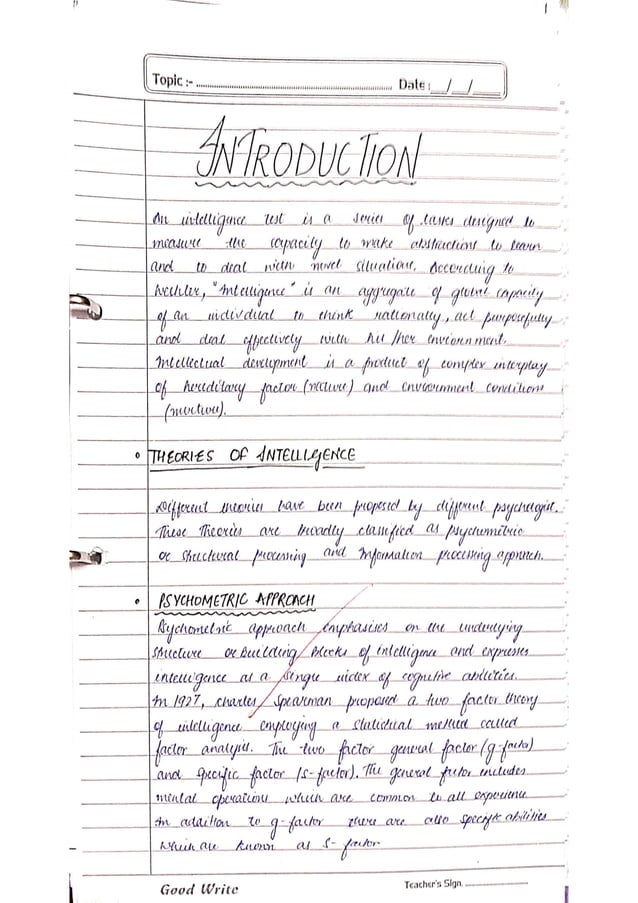 Topic :- Date : / /
INTRODUCTION
An intelligence test is a series of tasks designed to
measure the capacity to make abstractions to learn
and to deal with novel situations. According to
Wechler, "Intelligence" is an aggregate of global capacity
of an individual to think rationally, act purposefully
and deal effectively with his/her enviornment.
Intellectual development is a product of complex interplay
of hereditary factor (nature) and enviornment conditions
(nurture).
THEORIES OF INTELLIGENCE
Different theories have been proposed by different psychologist.
These Theories are broadly classified as psychometric
or structural processing and Information processing approach.
PSYCHOMETRIC APPROACH
Psychometric approach emphasises on the underlying
structure or Building blocks of intelligence and expresses
intelligence as a single index of cognitive abilities.
In 1927, Charles Spearman proposed a two factor theory
of intelligence employing a statistical method called
factor analysis. The two factor general factor (g-factor)
and specific factor (s-factor). The general factor includes
mental operations which are common to all experience
In addition to g-factor there are also specific abilities
which are known as s-factor
Good Write
Teacher's Sign.